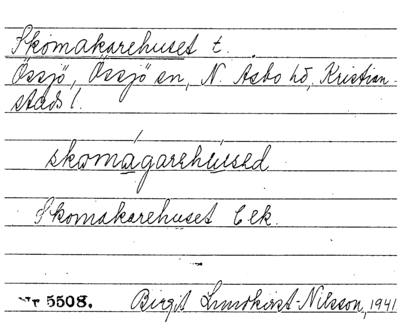 Skomakarehuset t.
Össjö, Össjö sn, N. Åsbo hd, Kristian-
stads l.
skomágarehúused
Skomakarehuset Cek.
Nr 5508. Birgit Lundkvist-Nilsson, 1941